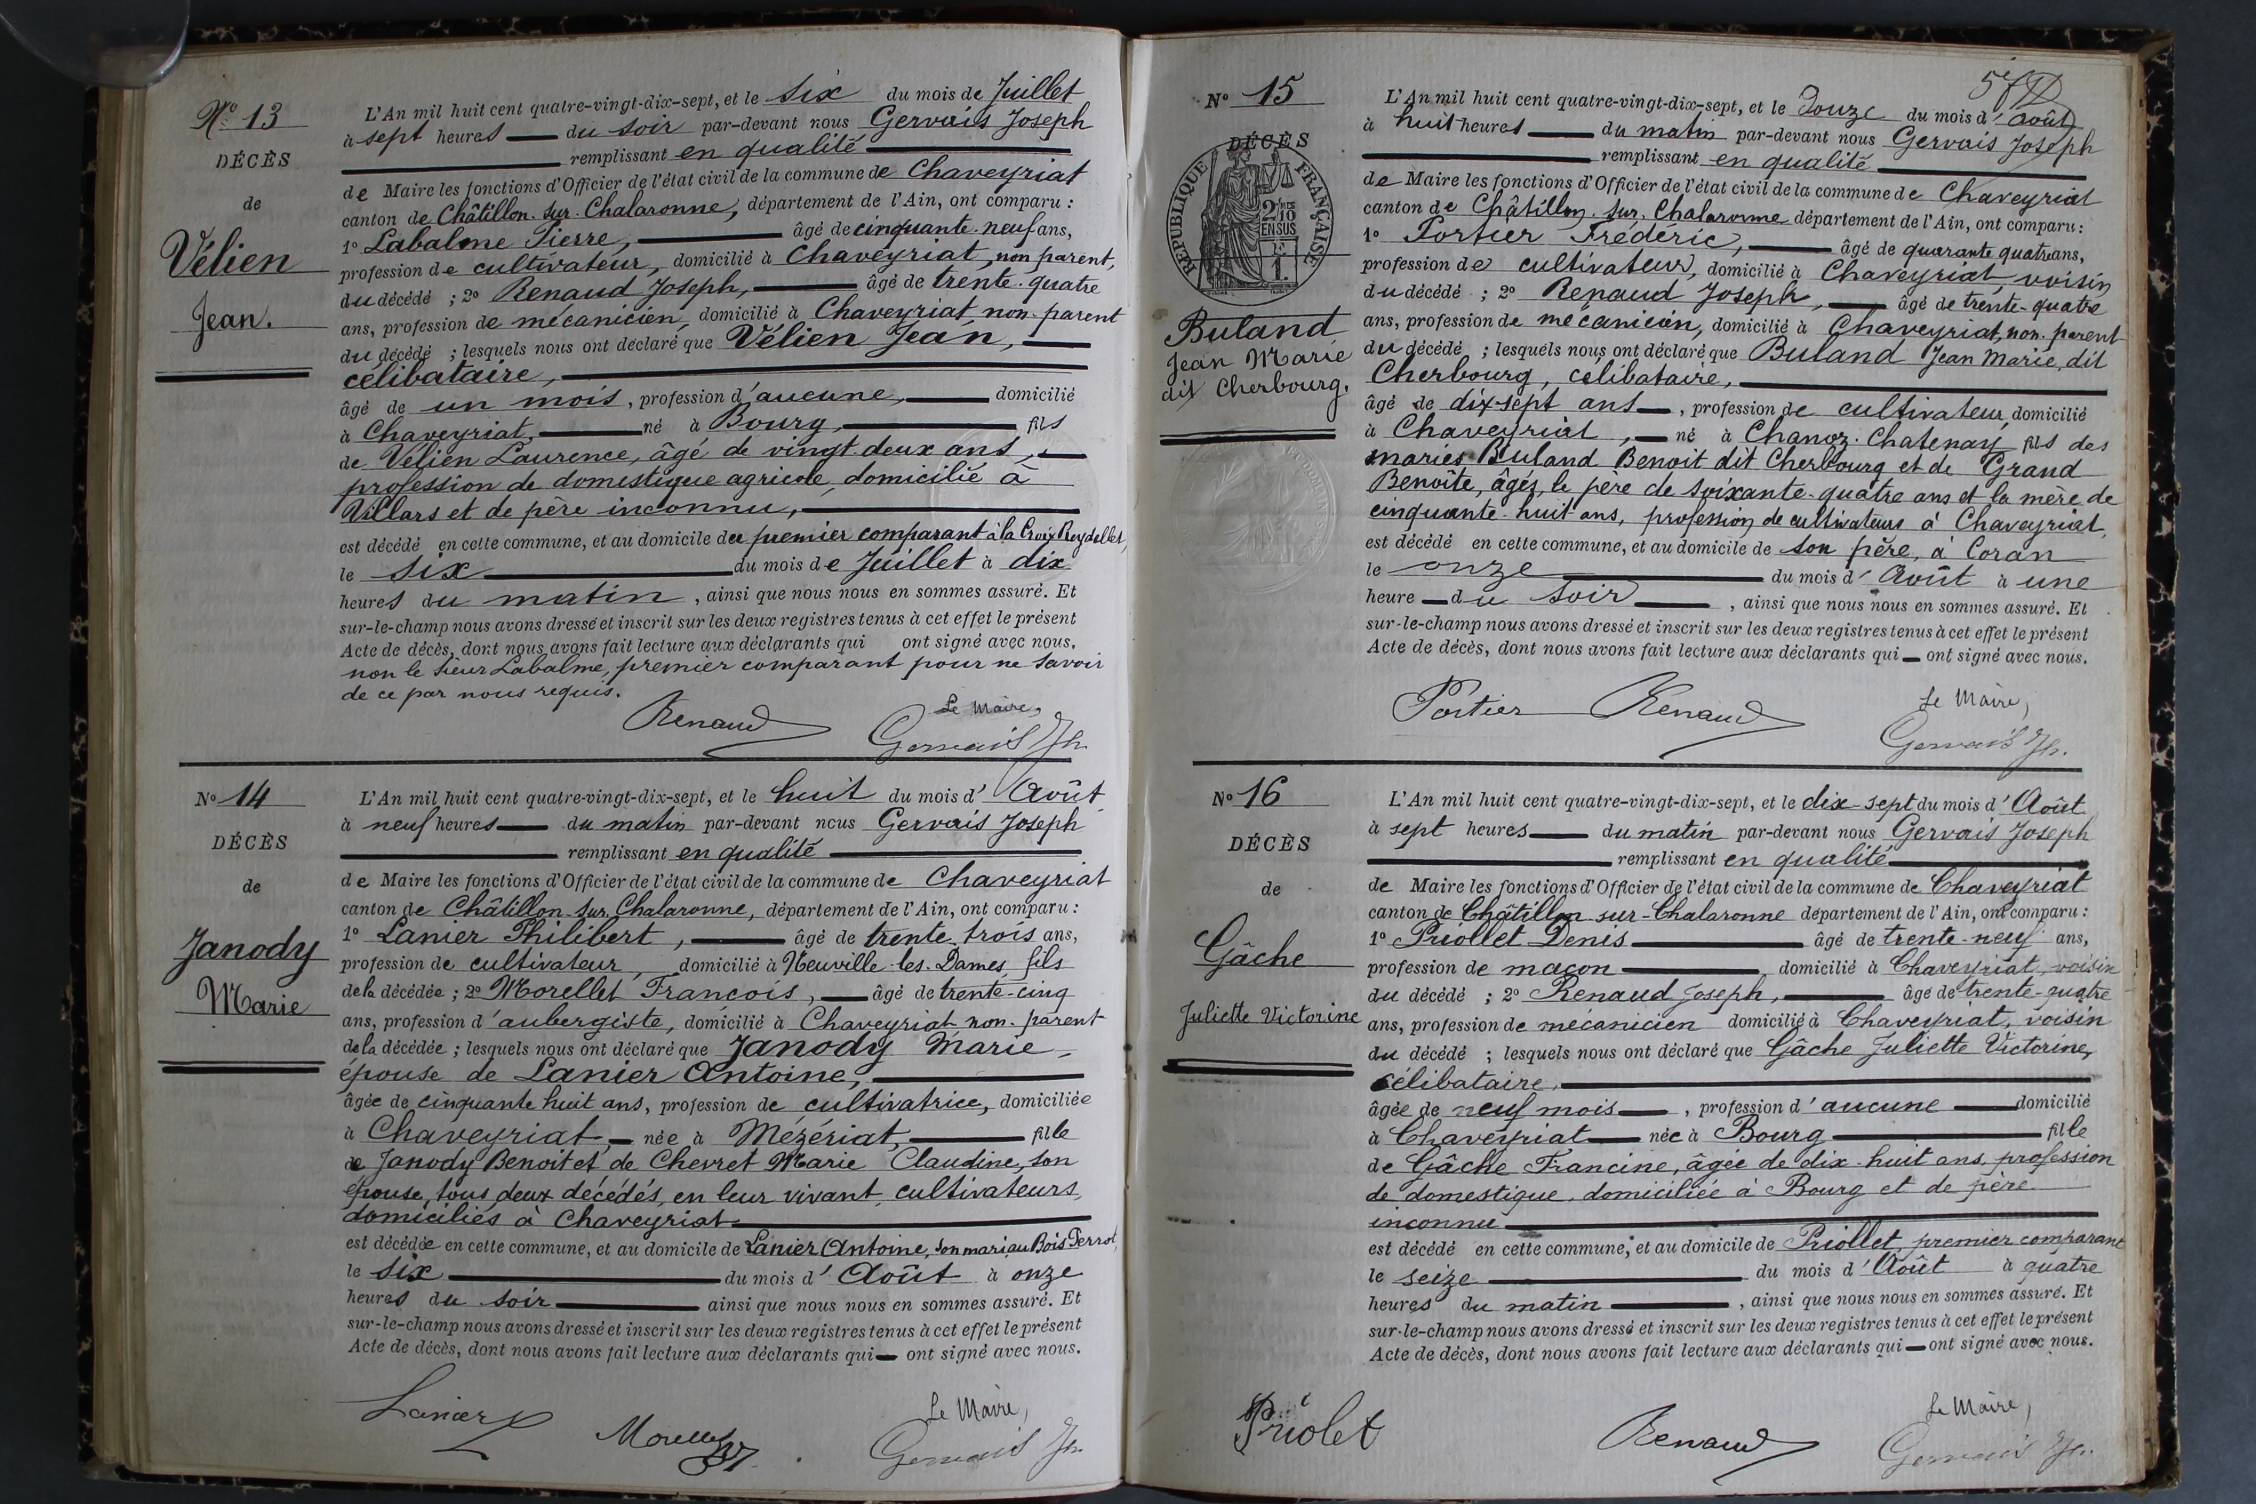 No 13
DÉCÈS
de
Vélien
Jean.
L'An mil huit cent quatre-vingt-dix-sept, et le six du mois de Juillet
à sept heures du soir par-devant nous Gervais Joseph
remplissant en qualité
de Maire les fonctions d'Officier de l'état civil de la commune de Chaveyriat
canton de Châtillon-sur-Chalaronne, département de l'Ain, ont comparu :
1o Labalme Pierre, âgé de cinquante-neuf ans,
profession de cultivateur, domicilié à Chaveyriat, non parent,
du décédé ; 2o Renaud Joseph, âgé de trente-quatre
ans, profession de mécanicien, domicilié à Chaveyriat, non-parent
du décédé ; lesquels nous ont déclaré que Vélien Jean,
célibataire,
âgé de un mois, profession d'aucune, domicilié
à Chaveyriat, né à Bourg, fils
de Vélien Laurence, âgé de vingt deux ans,
profession de domestique agricole, domicilié à
Villars et de père inconnu,
est décédé en cette commune, et au domicile du premier comparant à la Croix
le six du mois de Juillet à dix
heures du matin, ainsi que nous nous en sommes assuré. Et
sur-le-champ nous avons dressé et inscrit sur les deux registres tenus à cet effet le présent
Acte de décès, dont nous avons fait lecture aux déclarants qui ont signé avec nous,
non le sieur Labalme, premier comparant pour ne savoir
de ce par nous requis.
Renaud
Le Maire,
Gervais Jh.
No 14
DÉCÈS
de
Janody
Marie
L'An mil huit cent quatre-vingt-dix-sept, et le huit du mois d'Août
à neuf heures du matin par-devant nous Gervais Joseph
remplissant en qualité
de Maire les fonctions d'Officier de l'état civil de la commune de Chaveyriat
canton de Châtillon-sur-Chalaronne, département de l'Ain, ont comparu :
1o Lanier Philibert, âgé de trente trois ans,
profession de cultivateur, domicilié à Neuville-les-Dames, fils
de la décédée ; 2o Morellet François, âgé de trente-cinq
ans, profession d'aubergiste, domicilié à Chaveyriat non-parent
de la décédée ; lesquels nous ont déclaré que Janody Marie
épouse de Lanier Antoine,
âgée de cinquante huit ans, profession de cultivatrice, domiciliée
à Chaveyriat, née à Mézériat, fille
de Janody Benoit et de Chevret Marie Claudine, son
épouse, tous deux décédés, en leur vivant cultivateurs,
domiciliés à Chaveyriat
est décédée en cette commune, et au domicile de Lanier Antoine, son mari, au Bois Perrot,
le six du mois d'Août à onze
heures du soir ainsi que nous nous en sommes assuré. Et
sur-le-champ nous avons dressé et inscrit sur les deux registres tenus à cet effet le présent
Acte de décès, dont nous avons fait lecture aux déclarants qui ont signé avec nous.
Lanier
Morellet
Le Maire,
Gervais Jh.
No 15
DÉCÈS
RÉPUBLIQUE FRANÇAISE
2/10 EN SUS
Buland
Jean Marie
dit Cherbourg.
L'An mil huit cent quatre-vingt-dix-sept, et le douze du mois d'août
à huit heures du matin par-devant nous Gervais Joseph
remplissant en qualité
de Maire les fonctions d'Officier de l'état civil de la commune de Chaveyriat
canton de Châtillon-sur-Chalaronne département de l'Ain, ont comparu :
1o Portier Frédéric, âgé de quarante quatre ans,
profession de cultivateur, domicilié à Chaveyriat, voisin
du décédé ; 2o Renaud Joseph, âgé de trente-quatre
ans, profession de mécanicien, domicilié à Chaveyriat, non-parent
du décédé ; lesquels nous ont déclaré que Buland Jean Marie, dit
Cherbourg, célibataire,
âgé de dix-sept ans, profession de cultivateur, domicilié
à Chaveyriat, né à Chanoz-Chatenay, fils des
mariés Buland Benoit dit Cherbourg et de Grand
Benoîte, âgés, le père de soixante-quatre ans et la mère de
cinquante-huit ans, profession de cultivateurs à Chaveyriat,
est décédé en cette commune, et au domicile de son père, à Coran
le onze du mois d'Août à une
heure du soir, ainsi que nous nous en sommes assuré. Et
sur-le-champ nous avons dressé et inscrit sur les deux registres tenus à cet effet le présent
Acte de décès, dont nous avons fait lecture aux déclarants qui ont signé avec nous.
Portier
Renaud
Le Maire,
Gervais Jh.
No 16
DÉCÈS
de
Gâche
Juliette Victorine
L'An mil huit cent quatre-vingt-dix-sept, et le dix-sept du mois d'Août
à sept heures du matin par-devant nous Gervais Joseph
remplissant en qualité
de Maire les fonctions d'Officier de l'état civil de la commune de Chaveyriat
canton de Châtillon-sur-Chalaronne département de l'Ain, ont comparu :
1o Priollet Denis âgé de trente-neuf ans,
profession de maçon, domicilié à Chaveyriat, voisin
du décédé ; 2o Renaud Joseph, âgé de trente-quatre
ans, profession de mécanicien domicilié à Chaveyriat, voisin
du décédé ; lesquels nous ont déclaré que Gâche Juliette Victorine,
célibataire,
âgée de neuf mois, profession d'aucune domicilié
à Chaveyriat née à Bourg fille
de Gâche Francine, âgée de dix-huit ans, profession
de domestique, domiciliée à Bourg et de père
inconnu
est décédé en cette commune, et au domicile de Priollet, premier comparant
le seize du mois d'Août à quatre
heures du matin, ainsi que nous nous en sommes assuré. Et
sur-le-champ nous avons dressé et inscrit sur les deux registres tenus à cet effet le présent
Acte de décès, dont nous avons fait lecture aux déclarants qui ont signé avec nous.
Priolet
Renaud
Le Maire,
Gervais Jh.